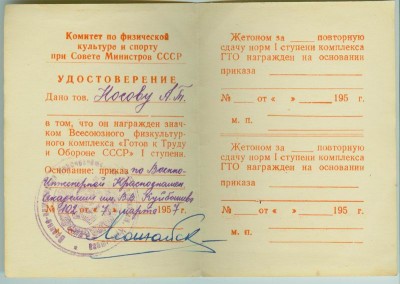 Комитет по физической
культуре и спорту
при Совете Министров СССР
УДОСТОВЕРЕНИЕ
Дано тов. Носову А.Т.
в том, что он награжден знач-
ком Всесоюзного физкультур-
ного комплекса «Готов к Труду
и Обороне СССР» I ступени.
Основание: приказ по Военно-
Инженерной Краснознамен.
Академии им. В.В. Куйбышева
№ 102 от «7» марта 1957 г.
Жетоном за ____ повторную
сдачу норм I ступени комплекса
ГТО награжден на основании
приказа
№ от « » 195 г.
м. п.
Жетоном за ____ повторную
сдачу норм I ступени комплекса
ГТО награжден на основании
приказа
№ от « » 195 г.
м. п.